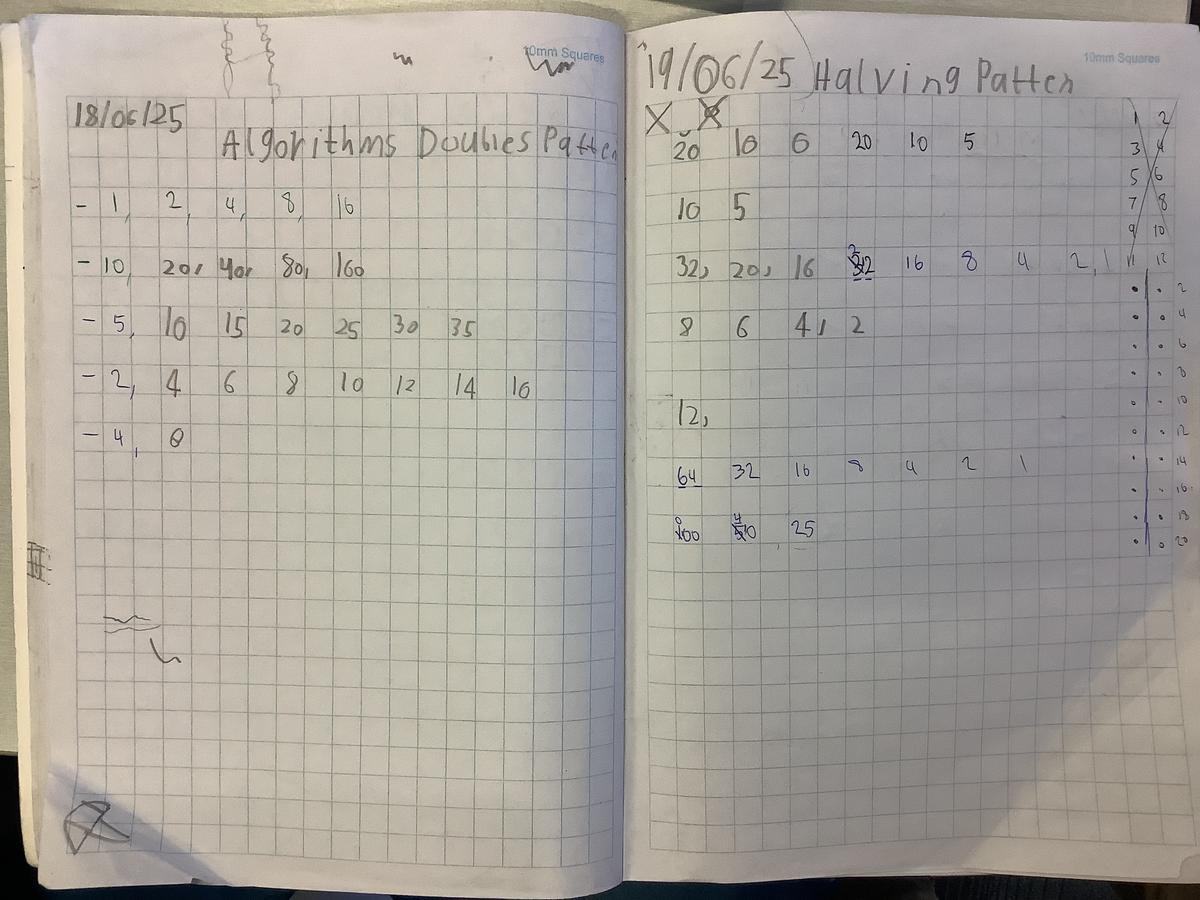 10mm Squares
18/06/25
Algorithms Doubles Patten
- 1, 2, 4, 8, 16
- 10, 20, 40, 80, 160
- 5, 10 15 20 25 30 35
- 2, 4 6 8 10 12 14 16
- 4, 8
10mm Squares
19/06/25 Halving Patten
X X
20 10 6 20 10 5
10 5
32, 20, 16 32 16 8 4 2, 1
8 6 4, 2
12,
64 32 16 8 4 2 1
100 50 25
1 2
3 4
5 6
7 8
9 10
11 12
2
4
6
8
10
12
14
16
18
20